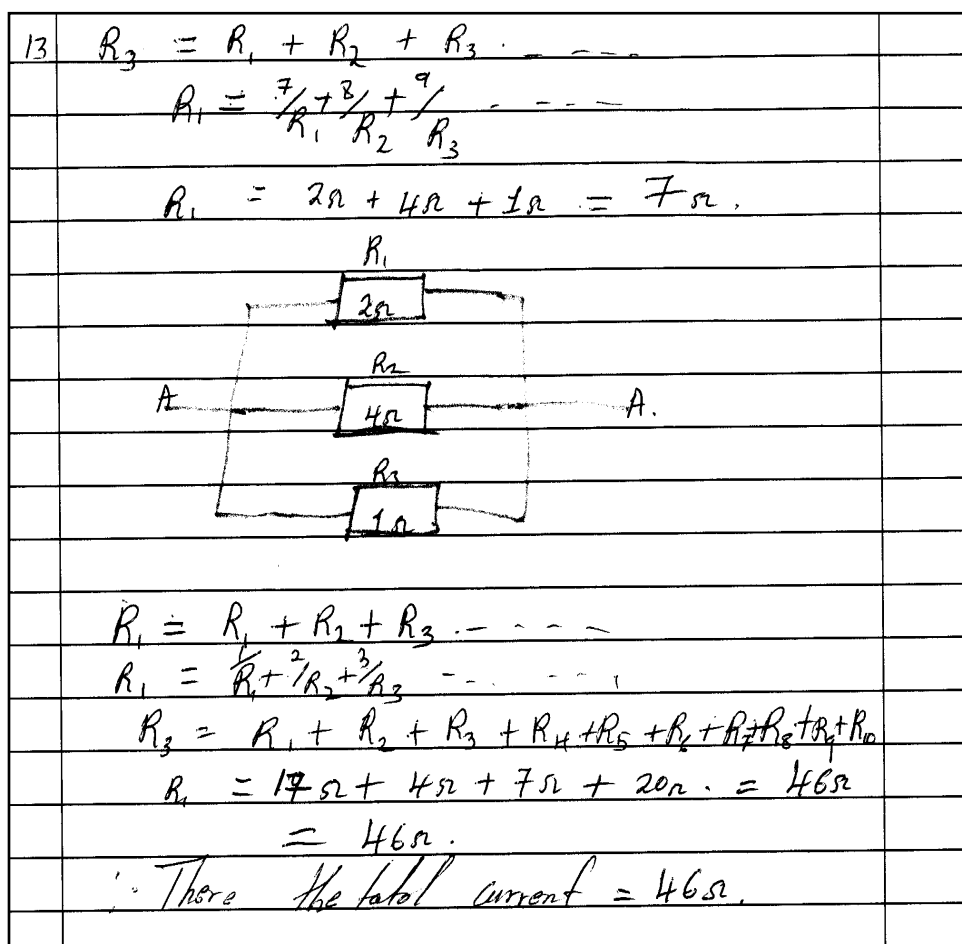 13 R₃ = R₁ + R₂ + R₃ . - - - -
R₁ = 7/R₁ + 8/R₂ + 9/R₃ - - - -
R₁ = 2Ω + 4Ω + 1Ω = 7Ω.
R₁
2Ω
R₂
A 4Ω A.
R₃
1Ω
R₁ = R₁ + R₂ + R₃ . - - - -
R₁ = 1/R₁ + 2/R₂ + 3/R₃ - - - - -
R₃ = R₁ + R₂ + R₃ + R₄ + R₅ + R₆ + R₇ + R₈ + R₉ + R₁₀
R₁ = Ω + 4Ω + 7Ω + 20Ω . = 46Ω
= 46Ω.
∴ There the total current = 46Ω.